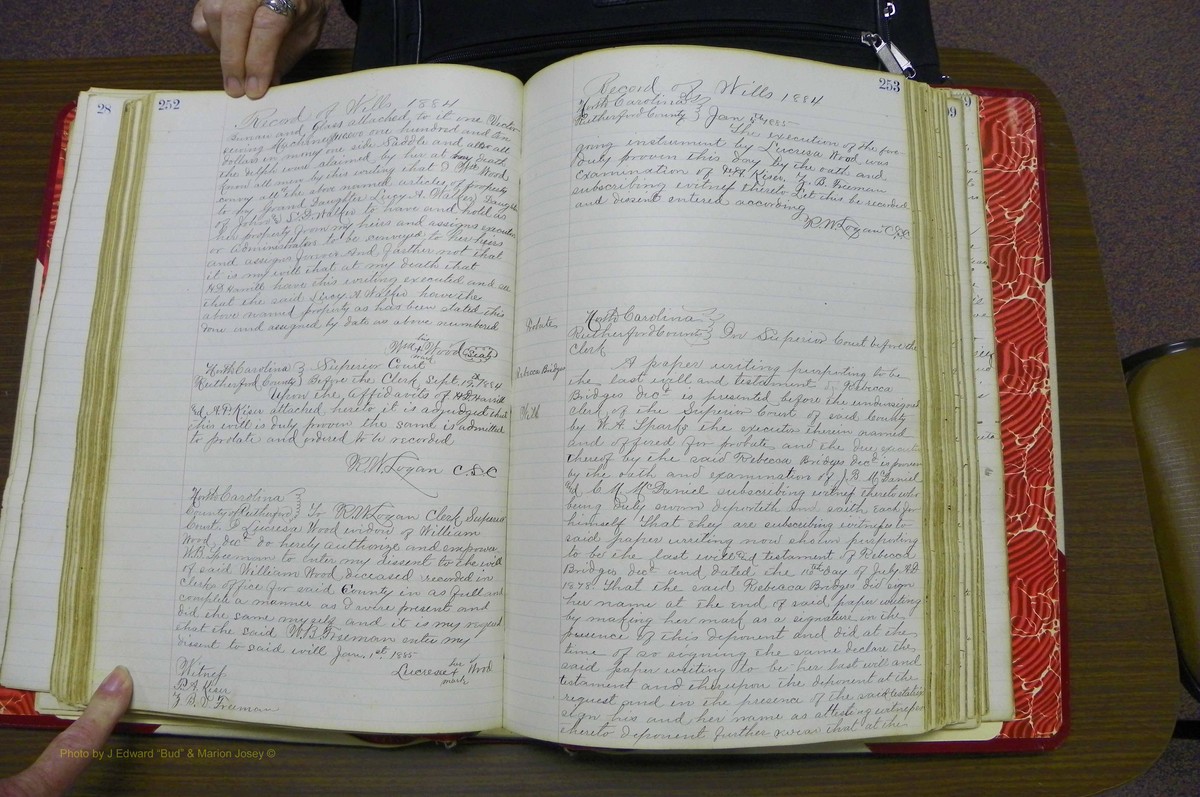 28
252
Record of Wills 1884
Bureau and Glass attached to it one Victor
Sewing Machine one hundred and ten
dollars in money one side Saddle and also all
the delph ware claimed by her at my death
Know all men by this writing that I Wm Wood
convey all the above named articles of property
to my Grand Daughter Lucy A. Walker Daughter
of John & S. D. Walker to have and hold as
her property from my heirs and assigns executor
or administrator to be conveyed to her heirs
and assigns forever And further not that
it is my will that at my death that
have this writing executed and see
that the said Lucy A Walker have the
above named property as has been stated this
done and assigned by date as above numbered
Wm his x mark Wood (Seal)
North Carolina } Superior Court
Rutherford County } Before the Clerk Sept. 1884
Upon the affidavits of H D Harrill
and A. P. Kiser attached hereto it is adjudged that
this will is duly proven the same is admitted
to probate and ordered to be recorded
R W Logan C. S. C
North Carolina
County of Rutherford } To R W Logan Clerk Superior
Court. I Lucresa Wood widow of William
Wood, decd do hereby authorize and empower
W. B. Freeman to enter my dissent to the will
of said William Wood deceased recorded in
Clerks office for said County in as full and
complete a manner as I were present and
did the same myself and it is my request
that the said W. B. Freeman enter my
disent to said will Jan. 1st 1885
Witness
Lucresa her + mark Wood
P. A. Kiser
Freeman
253
Record of Wills 1884
North Carolina }
Rutherford County } Jan 1885
The execution of the fore
going instrument by Lucresa Wood was
duly proven this day by the oath and
examination of Kiser, B. Freeman
subscribing witness thereto Let this be recorded
and dissent entered according
R. W. Logan C. S. C
Probate
North Carolina }
Rutherford County } In Superior Court before the
Clerk
Rebecca Bridges
A paper writing purporting to be
the last will and testament of Rebecca
Bridges decd is presented before the undersigned
Will
Clerk of the Superior Court of said County
by W. A. Sparks the executor therein named
and offered for probate and the due execution
thereof by the said Rebecca Bridges decd is proven
by the oath and examination of J. B. McDaniel
and C. M. McDaniel subscribing witness thereto who
being duly sworn deposeth and saith each for
himself That they are subscribing witnesses to
said paper writing now shown purporting
to be the last will and testament of Rebecca
Bridges decd and dated the day of July A.D.
1878. That the said Rebecca Bridges did sign
her name at the end of said paper writing
by making her mark as a signature in the
presence of this deponent and did at the
time of so signing the same declare the
said paper writing to be her last will and
testament and thereupon the deponent at the
request and in the presence of the said testatrix
sign his and her name as attesting witnesses
thereto deponent further swear that at the
Photo by J Edward "Bud" & Marion Josey ©